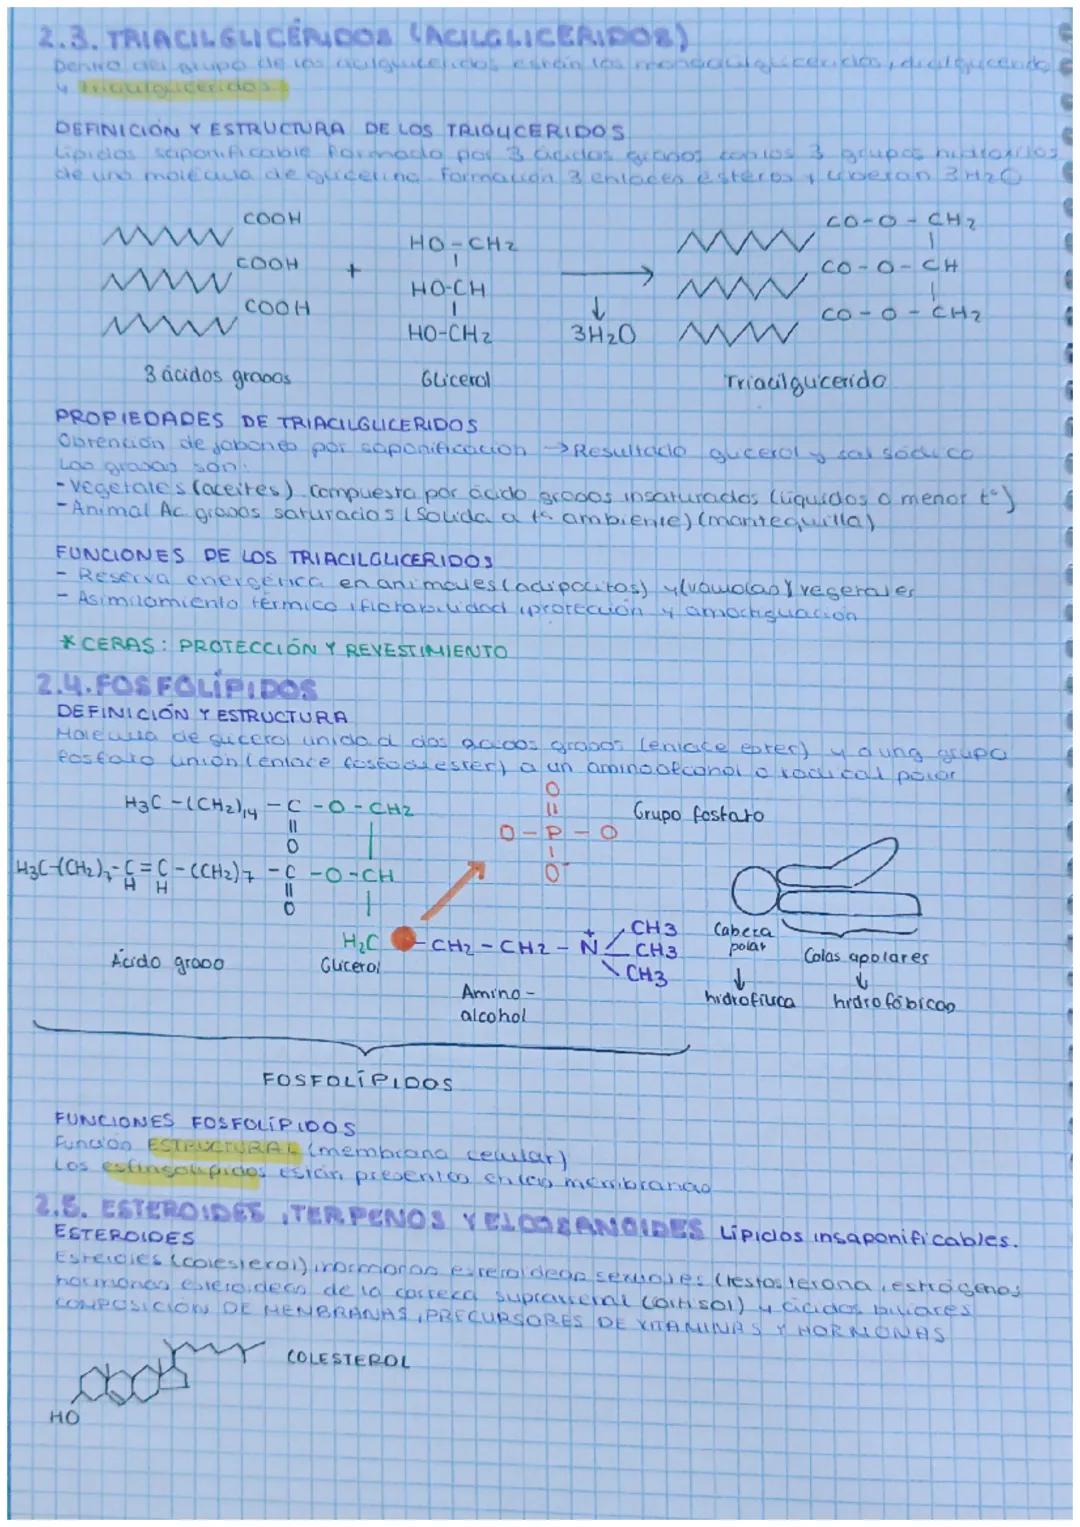 2.3. TRIACILGLICÉRIDOS (ACILGLICERIDOS)
Dentro del grupo de los acilglicéridos están los monoacilglicéridos, diacilglicérido
y triacilglicéridos
DEFINICIÓN Y ESTRUCTURA DE LOS TRIGLICERIDOS
Lípidos saponificable formado por 3 ácidos grasos con los 3 grupos hidroxilos
de una molécula de glicerina. Formación 3 enlaces ésteres y liberan 3H2O
COOH
COOH
COOH
+
HO-CH2
HO-CH
HO-CH2
3H2O
CO-O-CH2
CO-O-CH
CO-O-CH2
3 ácidos grasos
Glicerol
Triacilglicerido
PROPIEDADES DE TRIACILGLICERIDOS
Obtención de jabones por saponificación → Resultado glicerol y sal sódico
Las grasas son:
- Vegetales (aceites). Compuesta por ácido grasos insaturados (líquidos a menor tº)
- Animal Ac. grasos saturados (Solida a tª ambiente) (mantequilla)
FUNCIONES DE LOS TRIACILGLICERIDOS
- Reserva energética en animales (adipocitos) y (vauolas) vegetales
- Asimilamiento térmico, flotabilidad, protección y amortiguación
* CERAS: PROTECCIÓN Y REVESTIMIENTO
2.4. FOSFOLÍPIDOS
DEFINICIÓN Y ESTRUCTURA
Molécula de glicerol unida a dos ácidos grasos (enlace ester) y a una grupo
fosfato unión (enlace fosfodiester) a un aminoalcohol o radical polar
H3C-(CH2)14-C-O-CH2
O
H3C-(CH2)7-C=C-(CH2)7-C-O-CH
H H
O
H2C
Glicerol
Ácido graso
O
O-P-O
O-
Grupo fosfato
CH2-CH2-N+
CH3
CH3
CH3
Amino-
alcohol
Cabeza
polar
hidrofílica
Colas apolares
hidrofóbicas
FOSFOLÍPIDOS
FUNCIONES FOSFOLÍPIDOS
Función ESTRUCTURAL (membrana celular)
Los esfingolípidos están presentes en las membranas
2.5. ESTEROIDES, TERPENOS Y EICOSANOIDES Lípidos insaponificables.
ESTEROIDES
Esteroles (colesterol), hormonas esteroideas sexuales (testosterona, estrógenos
hormonas esteroideas de la corteza suprarrenal (cortisol) y ácidos biliares
COMPOSICIÓN DE MENBRANAS, PRECURSORES DE VITAMINAS Y HORMONAS
COLESTEROL
HO